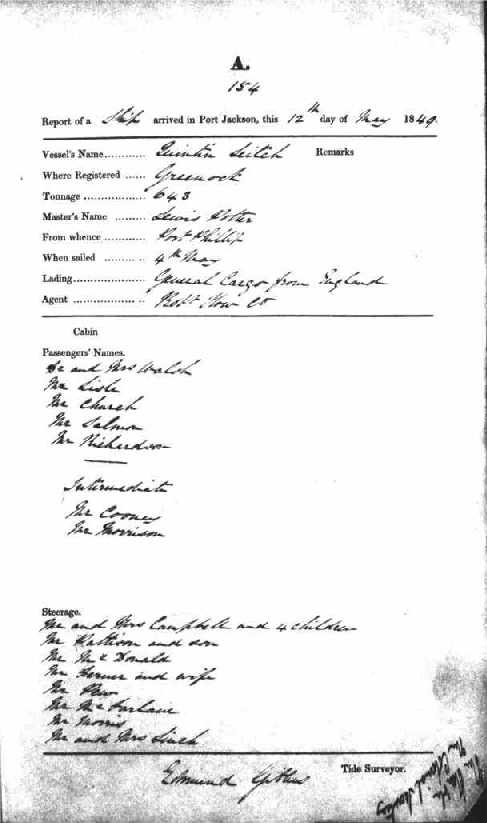 A.
154
Report of a Ship arrived in Port Jackson, this 12th day of May 1849.
Vessel's Name........... Quintin Leitch Remarks
Where Registered ...... Greenock
Tonnage .................. 643
Master's Name ......... Lewis Potter
From whence ............ Port Phillip
When sailed .......... 4th May
Lading..................... General Cargo from England
Agent ................... Robt How Co
Cabin
Passengers' Names.
and Mrs Walsh
Mr Lisle
Mr Church
Mr Salmon
Mr Richardson
Intermediate
Mr Cooney
Mr Morrison
Steerage.
Mr and Mrs Campbell and 4 children
Mr Pattison and son
Mr McDonald
Mr and wife
Mr Pew
Mr McFarlane
Mr Morris
Mr and Mrs
Edmund Tide Surveyor.